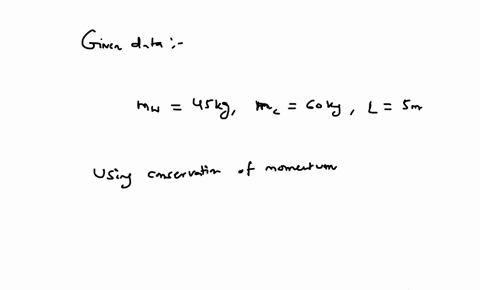 Given data :-
mw = 45kg, mc = 60kg, L = 5m
Using conservation of momentum